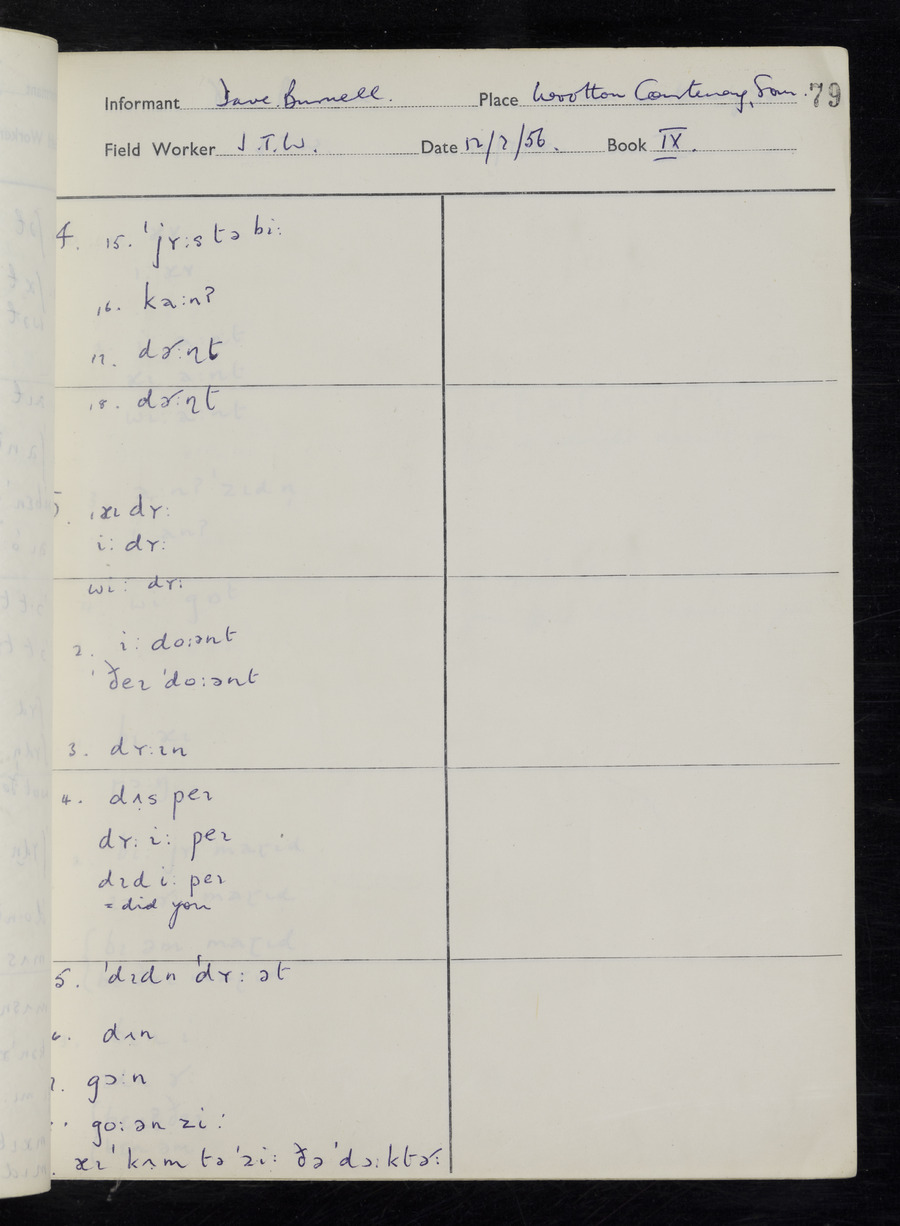 Informant Dave Burnell. Place Wootton Courtenay, Som. 79
Field Worker J.T.W. Date 12/7/56. Book IX.
4. 15. ˈjʏːs tə biː
16. kaːnʔ
17. dɚːn̩t
18. dɚːn̩t
5. 1. æɪ dʏː
iː dʏː
wiː dʏː
2. iː doːənt
ˈðeɪ ˈdoːənt
3. dʏːɪn
4. dʌs peɪ
dʏː iː peɪ
dɪd iː peɪ
= did you
5. ˈdɪdn ˈdʏː ət
6. dʌn
7. gɔːn
goːən ziː
æɪ ˈkʌm tə ˈziː ðə ˈdɔːktɚː